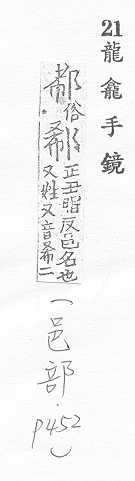 21 龍龕手鏡
俗郗正丑脂反邑名也
又姓又音希二
(邑部.p452)